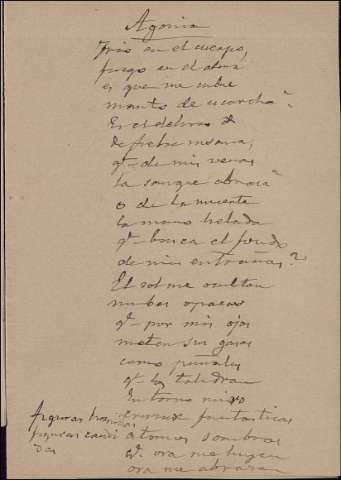 Agonia
Frio en el cuerpo,
fuego en el alma
es que me cubre
manto de escarcha?
Es el delirio
de fiebre insana,
qe. de mis venas
la sangre abrasa?
o de la muerte
la mano helada
qe. busca el fondo
de mis entrañas?
El sol me ocultan
nubes opacas
qe. por mis ojos
meten sus gasas
como puñales
qe. los taladran
En torno miro
fantasticas
atomos sombras
qe. ora me huyen
ora me abrazan
figuras
figuras candi
das